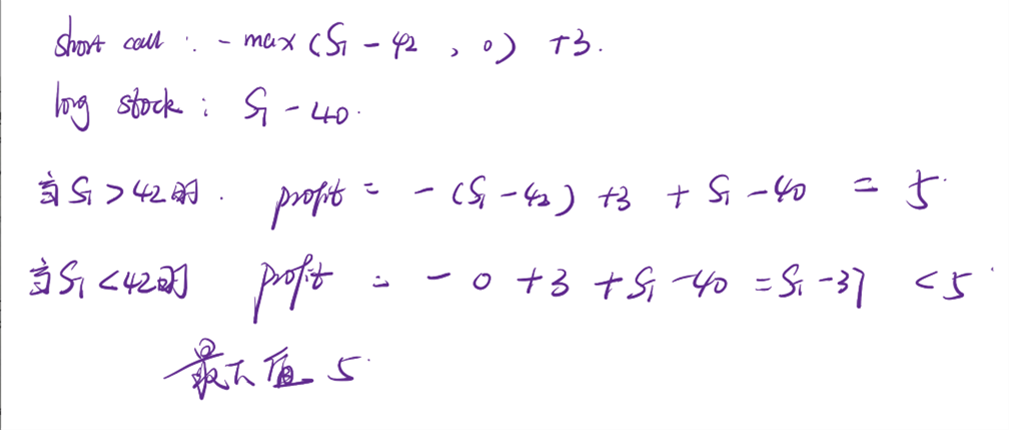 short call : - max (S₁ - 42 , 0) +3.
long stock : S₁ - 40.
当 S₁ > 42 时. profit = - (S₁ - 42) +3 + S₁ - 40 = 5.
当 S₁ < 42 时 profit = - 0 + 3 + S₁ - 40 = S₁ - 37 < 5.
最大值 5.